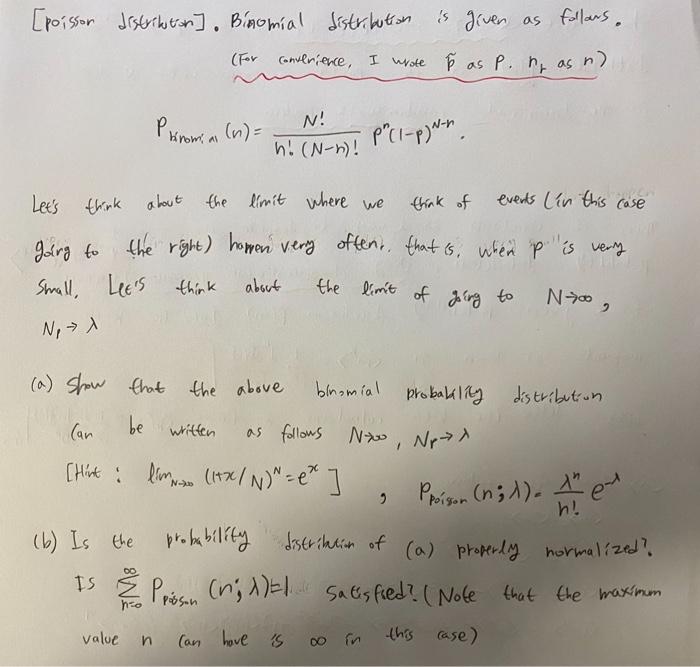 [poisson distribution]. Binomial distribution is given as follows.
(For convenience, I wrote p̃ as P. n_r as n)
P_binomial (n) = N! / n! (N-n)! p^n (1-p)^{N-n}.
Let's think about the limit where we think of events (in this case
going to the right) happen very often, that is, when "p" is very
small, Let's think about the limit of going to N→∞,
Np → λ
(a) show that the above binomial probability distribution
Can be written as follows N→∞, Np→λ
[Hint : lim_{N→∞} (1+x/N)^N = e^x ] , P_poisson (n;λ) = λ^n / n! e^{-λ}
(b) Is the probability distribution of (a) properly normalized?
Is Σ_{n=0}^{∞} P_poisson (n;λ)=1 satisfied? (Note that the maximum
value n can have is ∞ in this case)